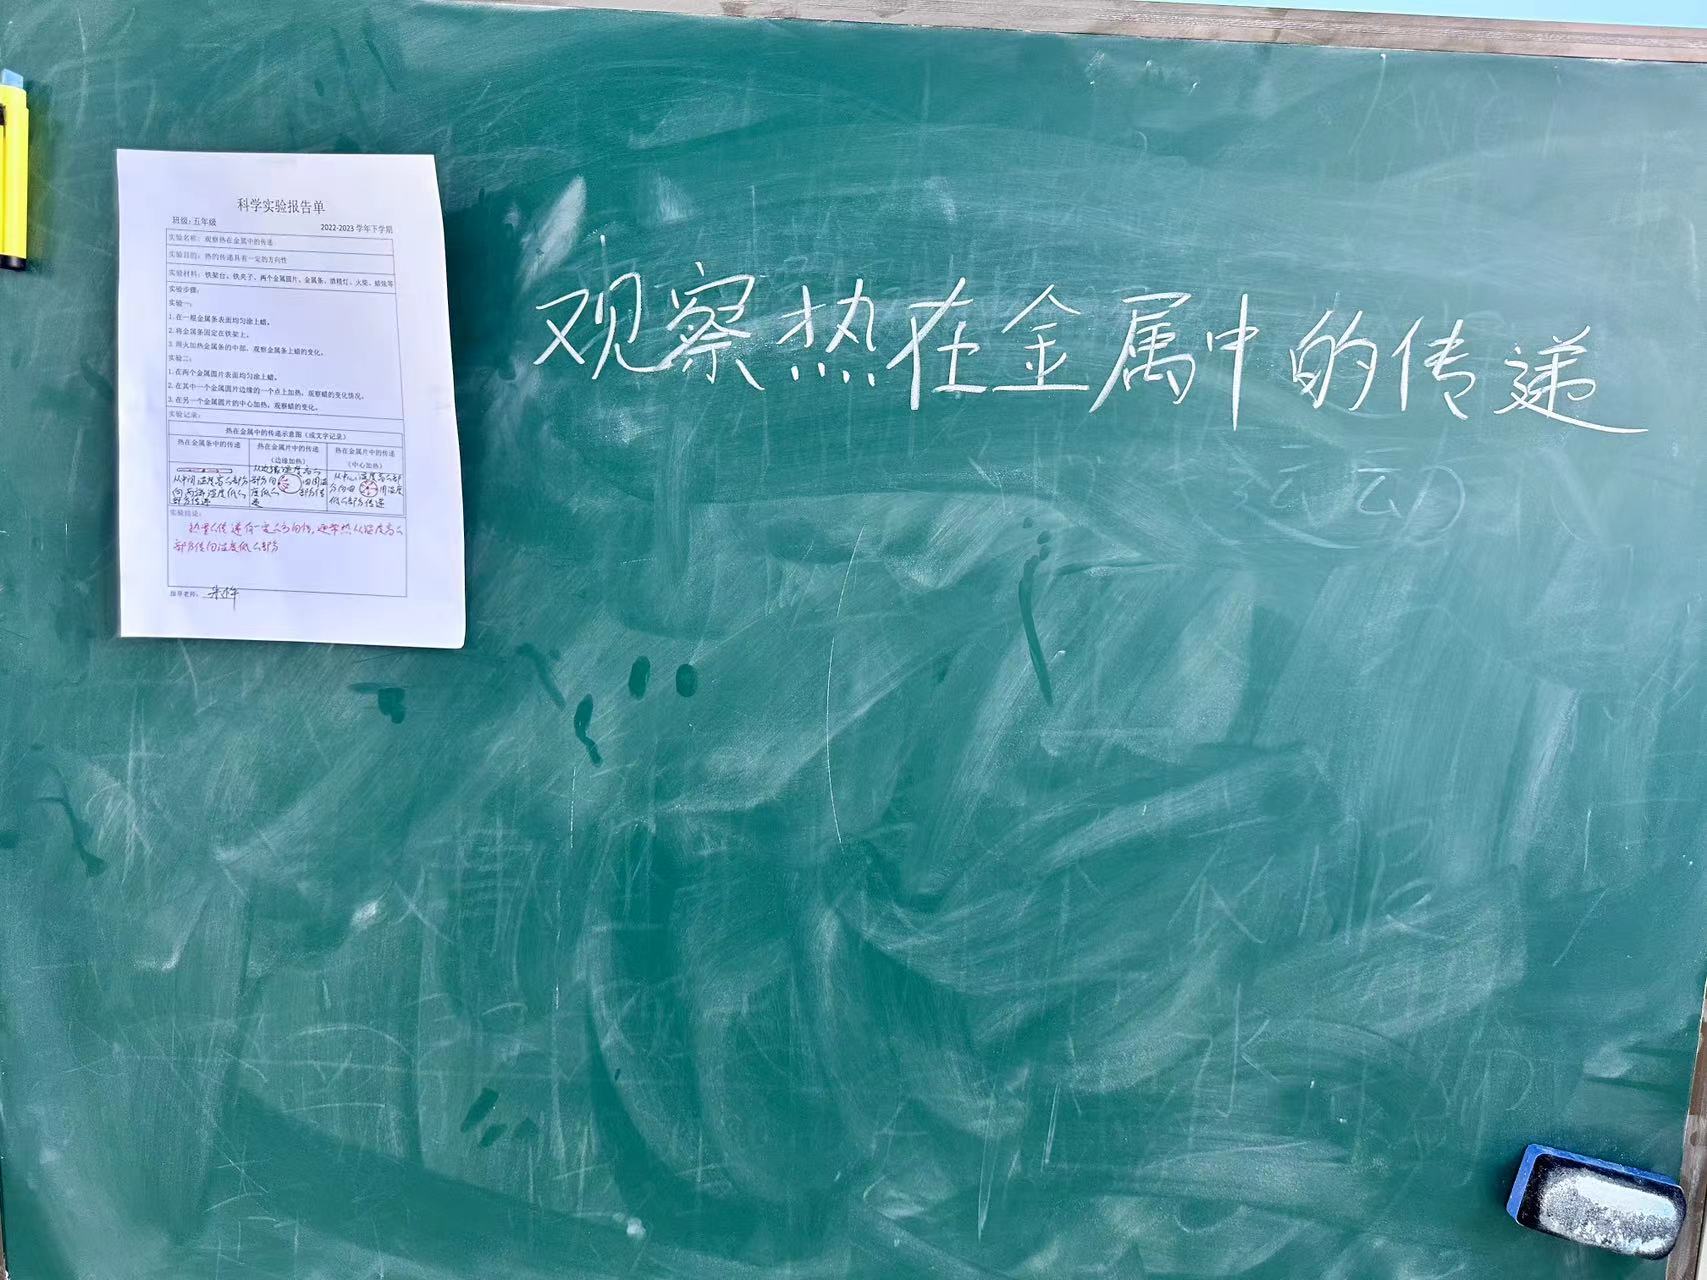 科学实验报告单
班级：五年级
2022-2023 学年下学期
实验名称：观察热在金属中的传递
实验目的：热的传递具有一定的方向性
实验材料：铁架台、铁夹子、两个金属圆片、金属条、酒精灯、火柴、蜡烛等
实验步骤：
实验一：
1.在一根金属条表面均匀涂上蜡。
2.将金属条固定在铁架上。
3.用火加热金属条的中部，观察金属条上蜡的变化。
实验二：
1.在两个金属圆片表面均匀涂上蜡。
2.在其中一个金属圆片边缘的一个点上加热，观察蜡的变化情况。
3.在另一个金属圆片的中心加热，观察蜡的变化。
实验记录：
热在金属中的传递示意图（或文字记录）
热在金属条中的传递
热在金属片中的传递
（边缘加热）
热在金属片中的传递
（中心加热）
从中间温度高的部分
向两端温度低的
部分传递
从边缘温度高的
部分向四周温
度低的部分传
递
从中心温度高的部
分向四周温度
低的部分传递
实验结论：
热量的传递有一定的方向性，通常热从温度高的
部分传向温度低的部分
指导老师：
观察热在金属中的传递